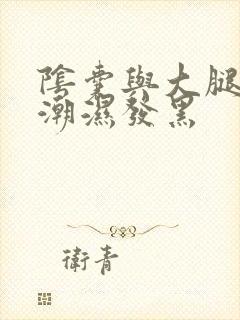 陰囊與大腿
潮濕發黑
衛青